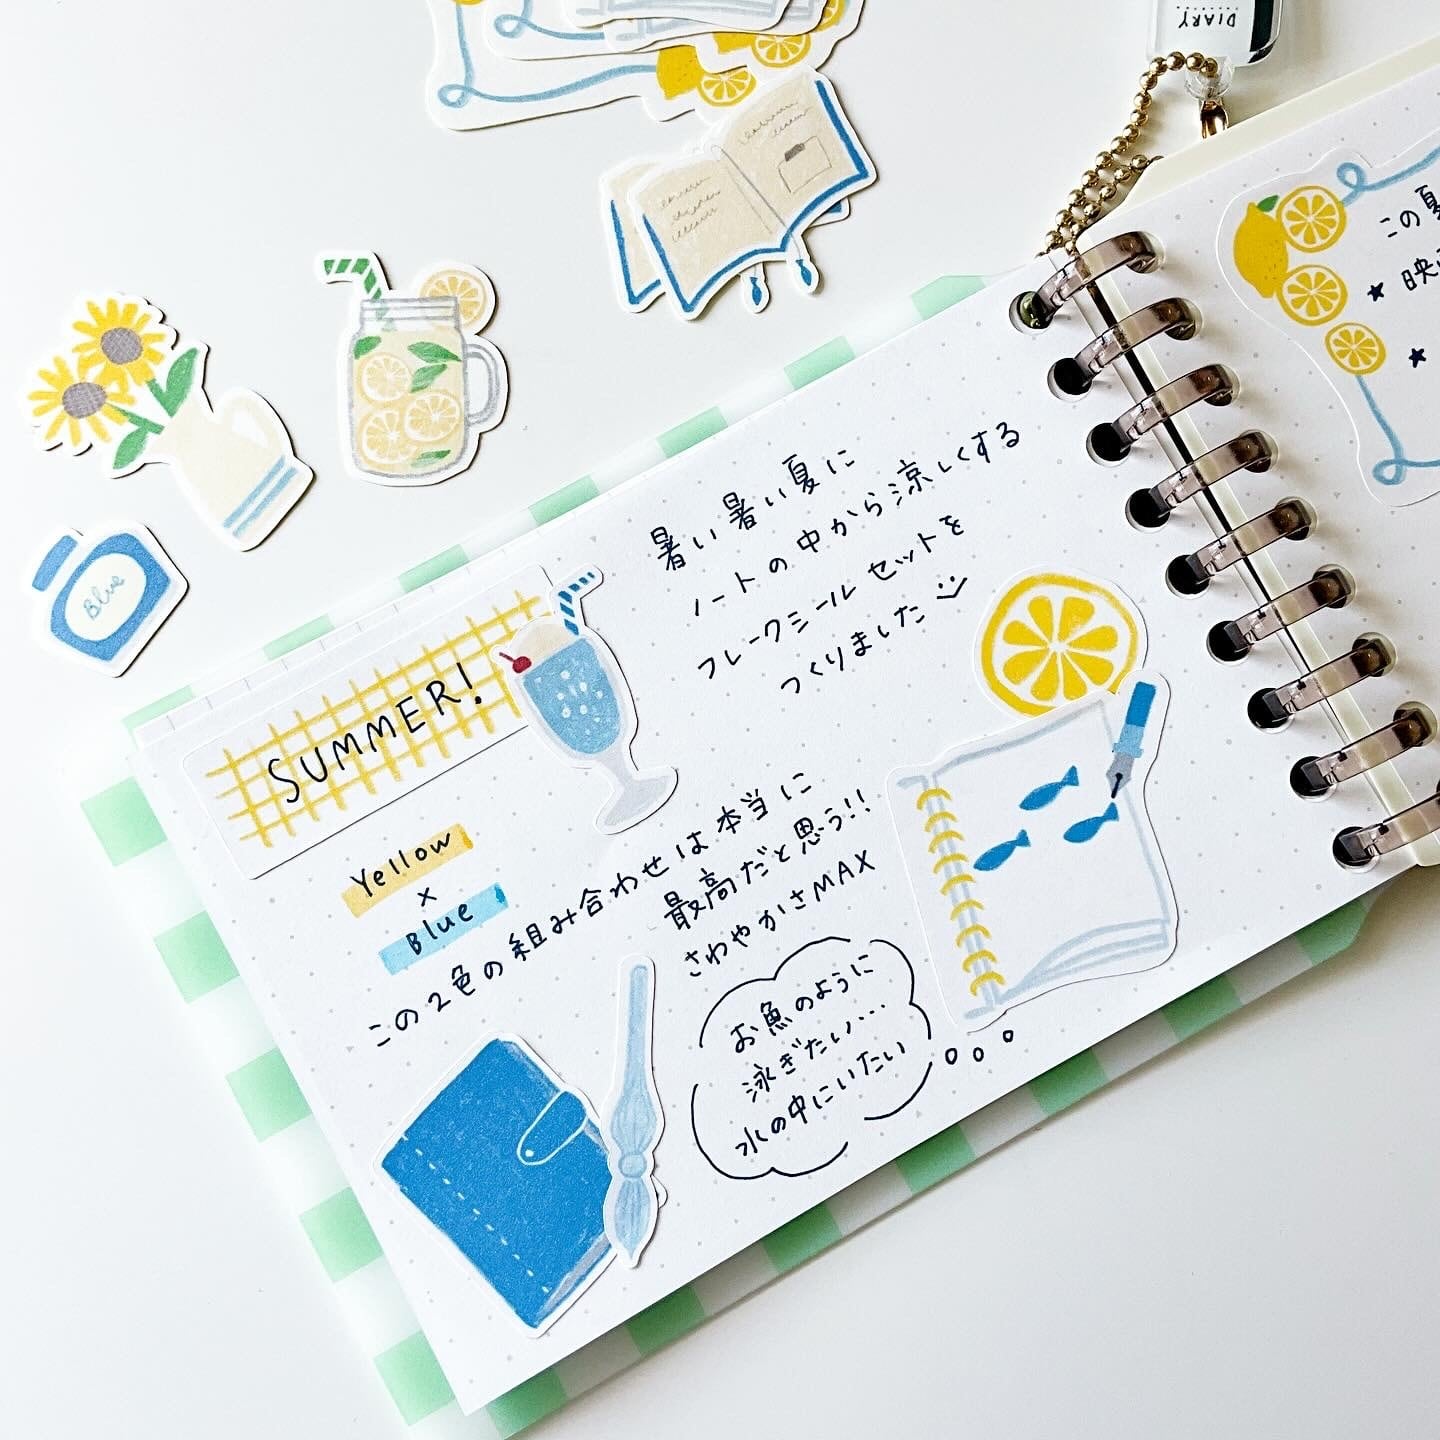 DIARY
この夏
★ 映
★
暑い暑い夏に
ノートの中から涼しくする
フレークシールセットを
つくりました
Blue
SUMMER!
Yellow
×
Blue
この2色の組み合わせは本当に
最高だと思う!!
さわやかさMAX
お魚のように
泳ぎたい…
水の中にいたい